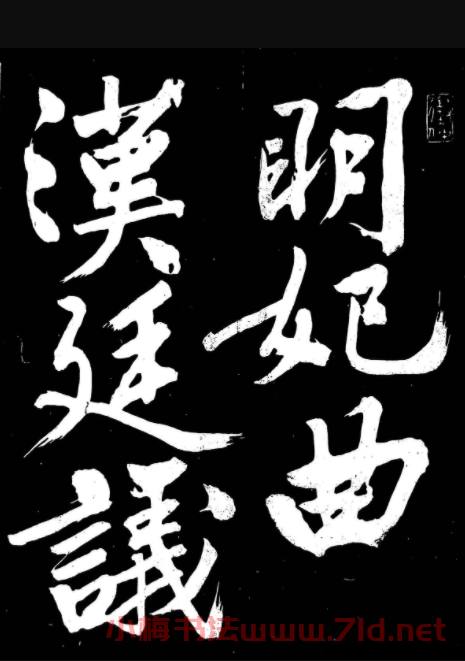 明妃曲
漢廷議
小梅书法www.7ld.net